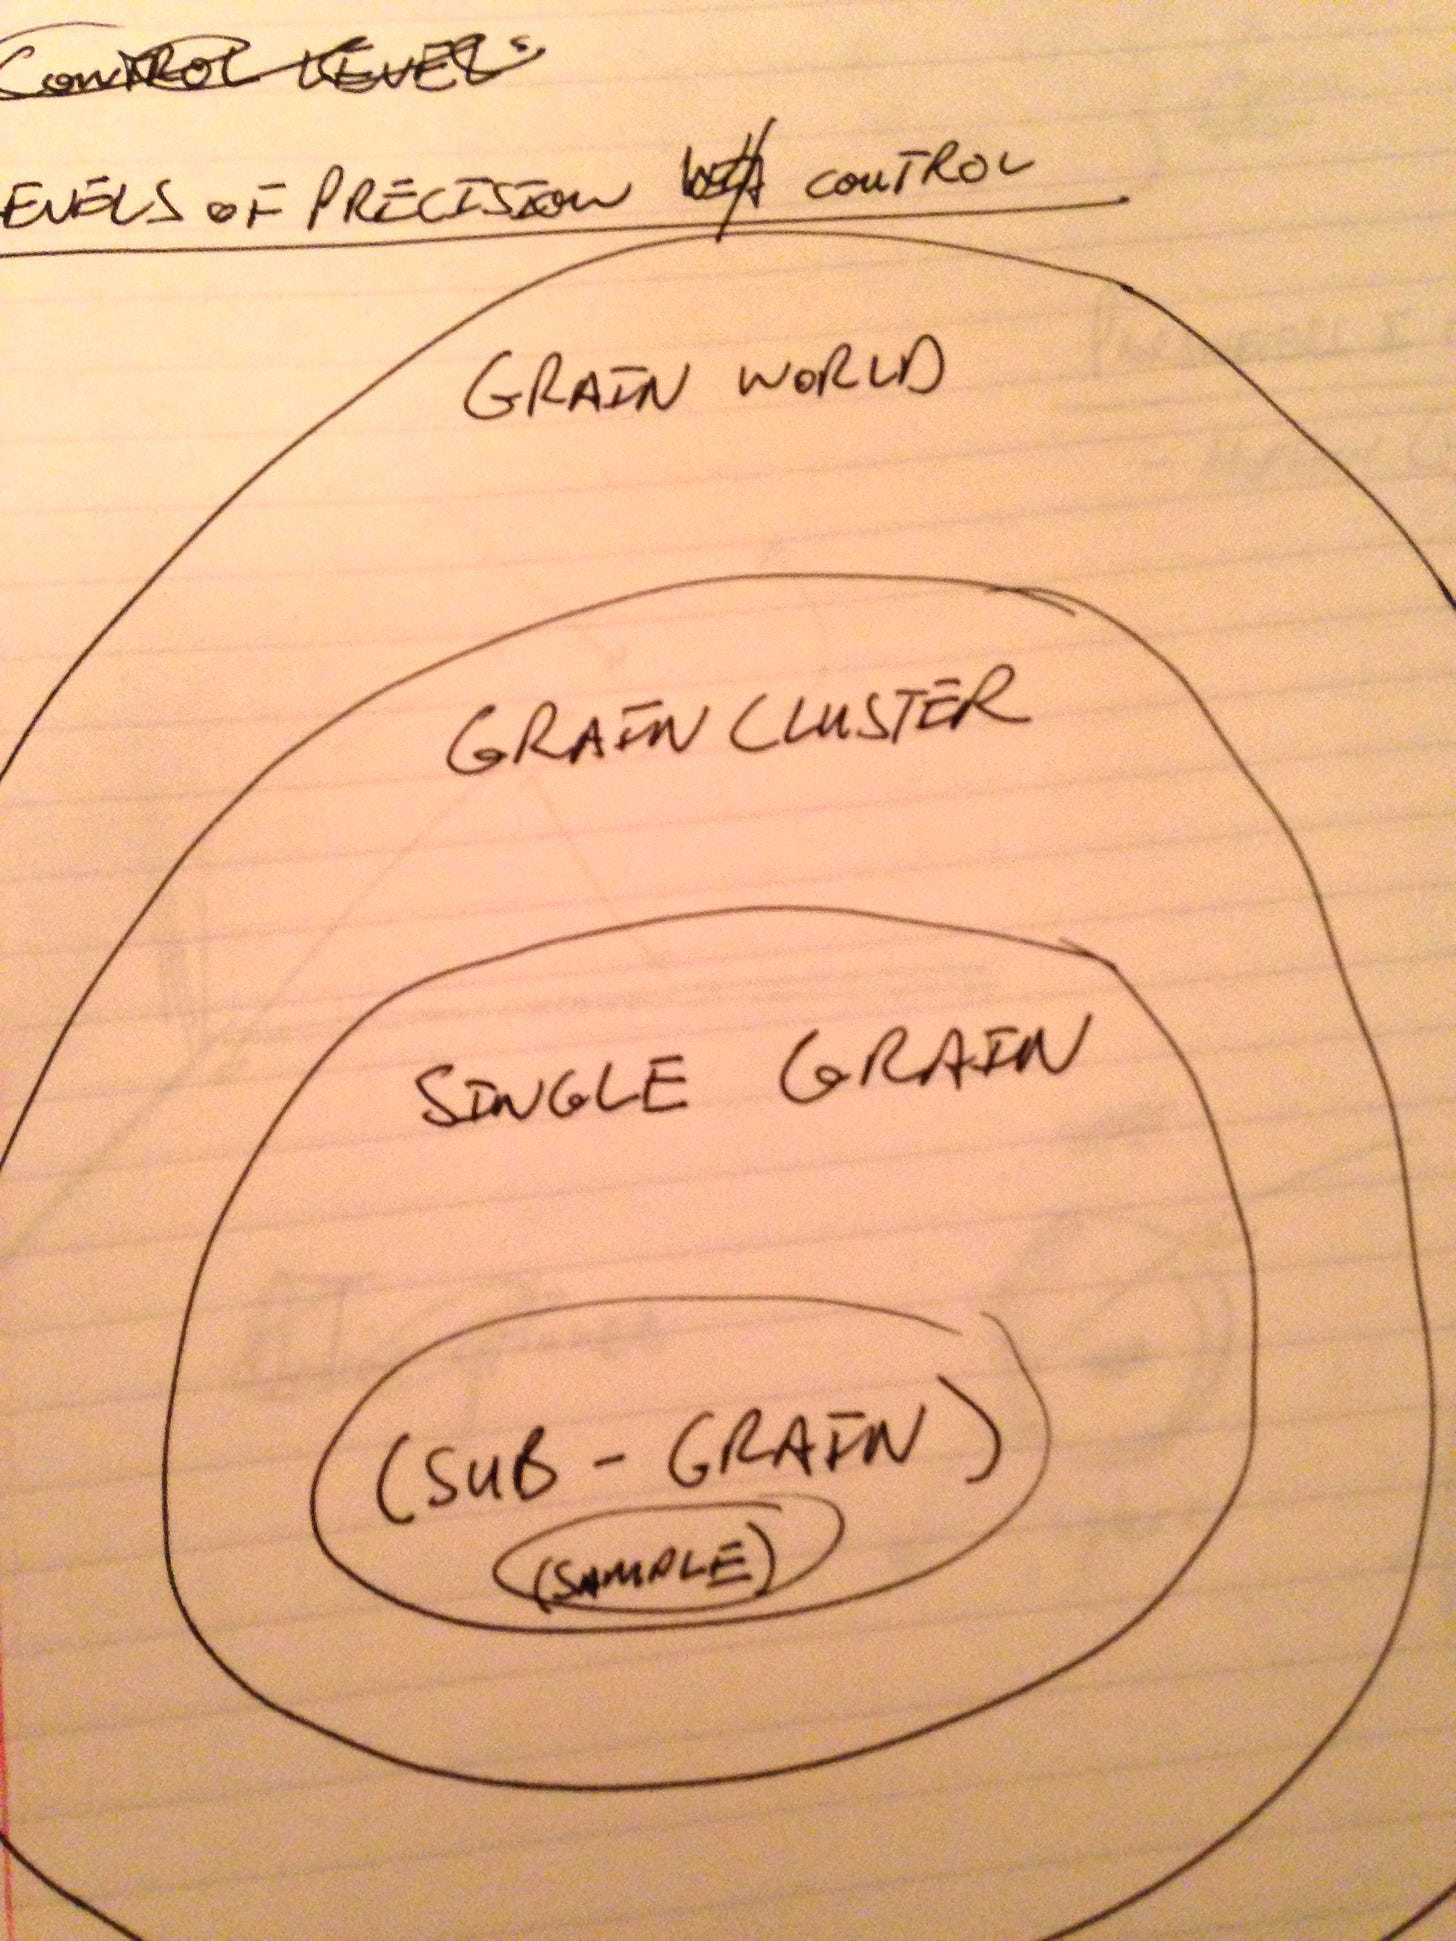 CONTROL LEVELS
EVELS OF PRECISION CONTROL
GRAIN WORLD
GRAIN CLUSTER
SINGLE GRAIN
(SUB - GRAIN)
(SAMPLE)